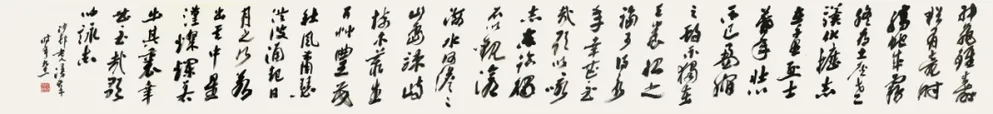 神龜雖壽
猶有竟时
騰蛇乘霧
終为土灰老
驥伏櫪志
在千里烈士
暮年壮心
不已盈縮
之期不独在
天養怡之
福可得永
年幸甚至
哉歌以咏
志东临碣
石以觀滄
海水何澹々
山岛竦峙
樹木叢生
百艸豐茂
秋風蕭瑟
洪波涌起日
月之行若
出其中星
漢燦爛若
出其裏幸
甚至哉歌
以詠志